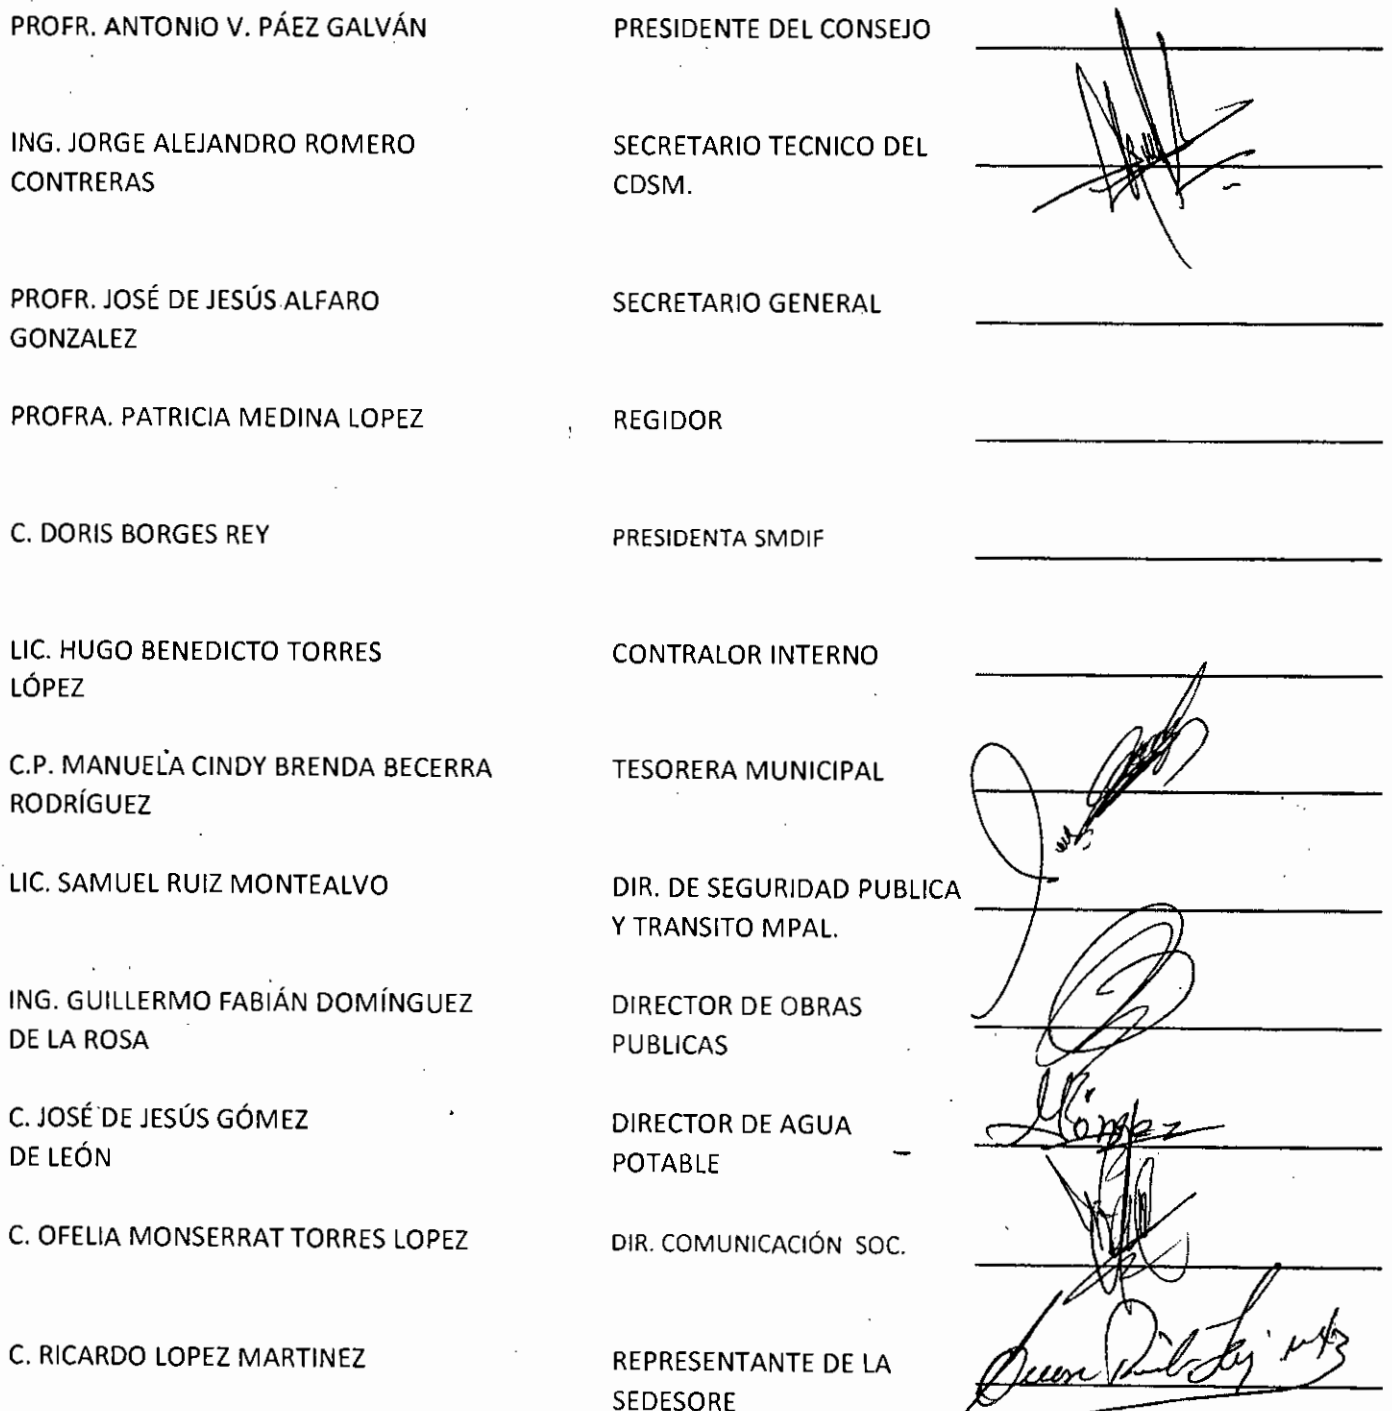 PROFR. ANTONIO V. PÁEZ GALVÁN PRESIDENTE DEL CONSEJO
ING. JORGE ALEJANDRO ROMERO SECRETARIO TECNICO DEL
CONTRERAS CDSM.
PROFR. JOSÉ DE JESÚS ALFARO SECRETARIO GENERAL
GONZALEZ
PROFRA. PATRICIA MEDINA LOPEZ REGIDOR
C. DORIS BORGES REY PRESIDENTA SMDIF
LIC. HUGO BENEDICTO TORRES CONTRALOR INTERNO
LÓPEZ
C.P. MANUELA CINDY BRENDA BECERRA TESORERA MUNICIPAL
RODRÍGUEZ
LIC. SAMUEL RUIZ MONTEALVO DIR. DE SEGURIDAD PUBLICA
Y TRANSITO MPAL.
ING. GUILLERMO FABIÁN DOMÍNGUEZ DIRECTOR DE OBRAS
DE LA ROSA PUBLICAS
C. JOSÉ DE JESÚS GÓMEZ DIRECTOR DE AGUA Gómez
DE LEÓN POTABLE
C. OFELIA MONSERRAT TORRES LOPEZ DIR. COMUNICACIÓN SOC.
C. RICARDO LOPEZ MARTINEZ REPRESENTANTE DE LA
SEDESORE